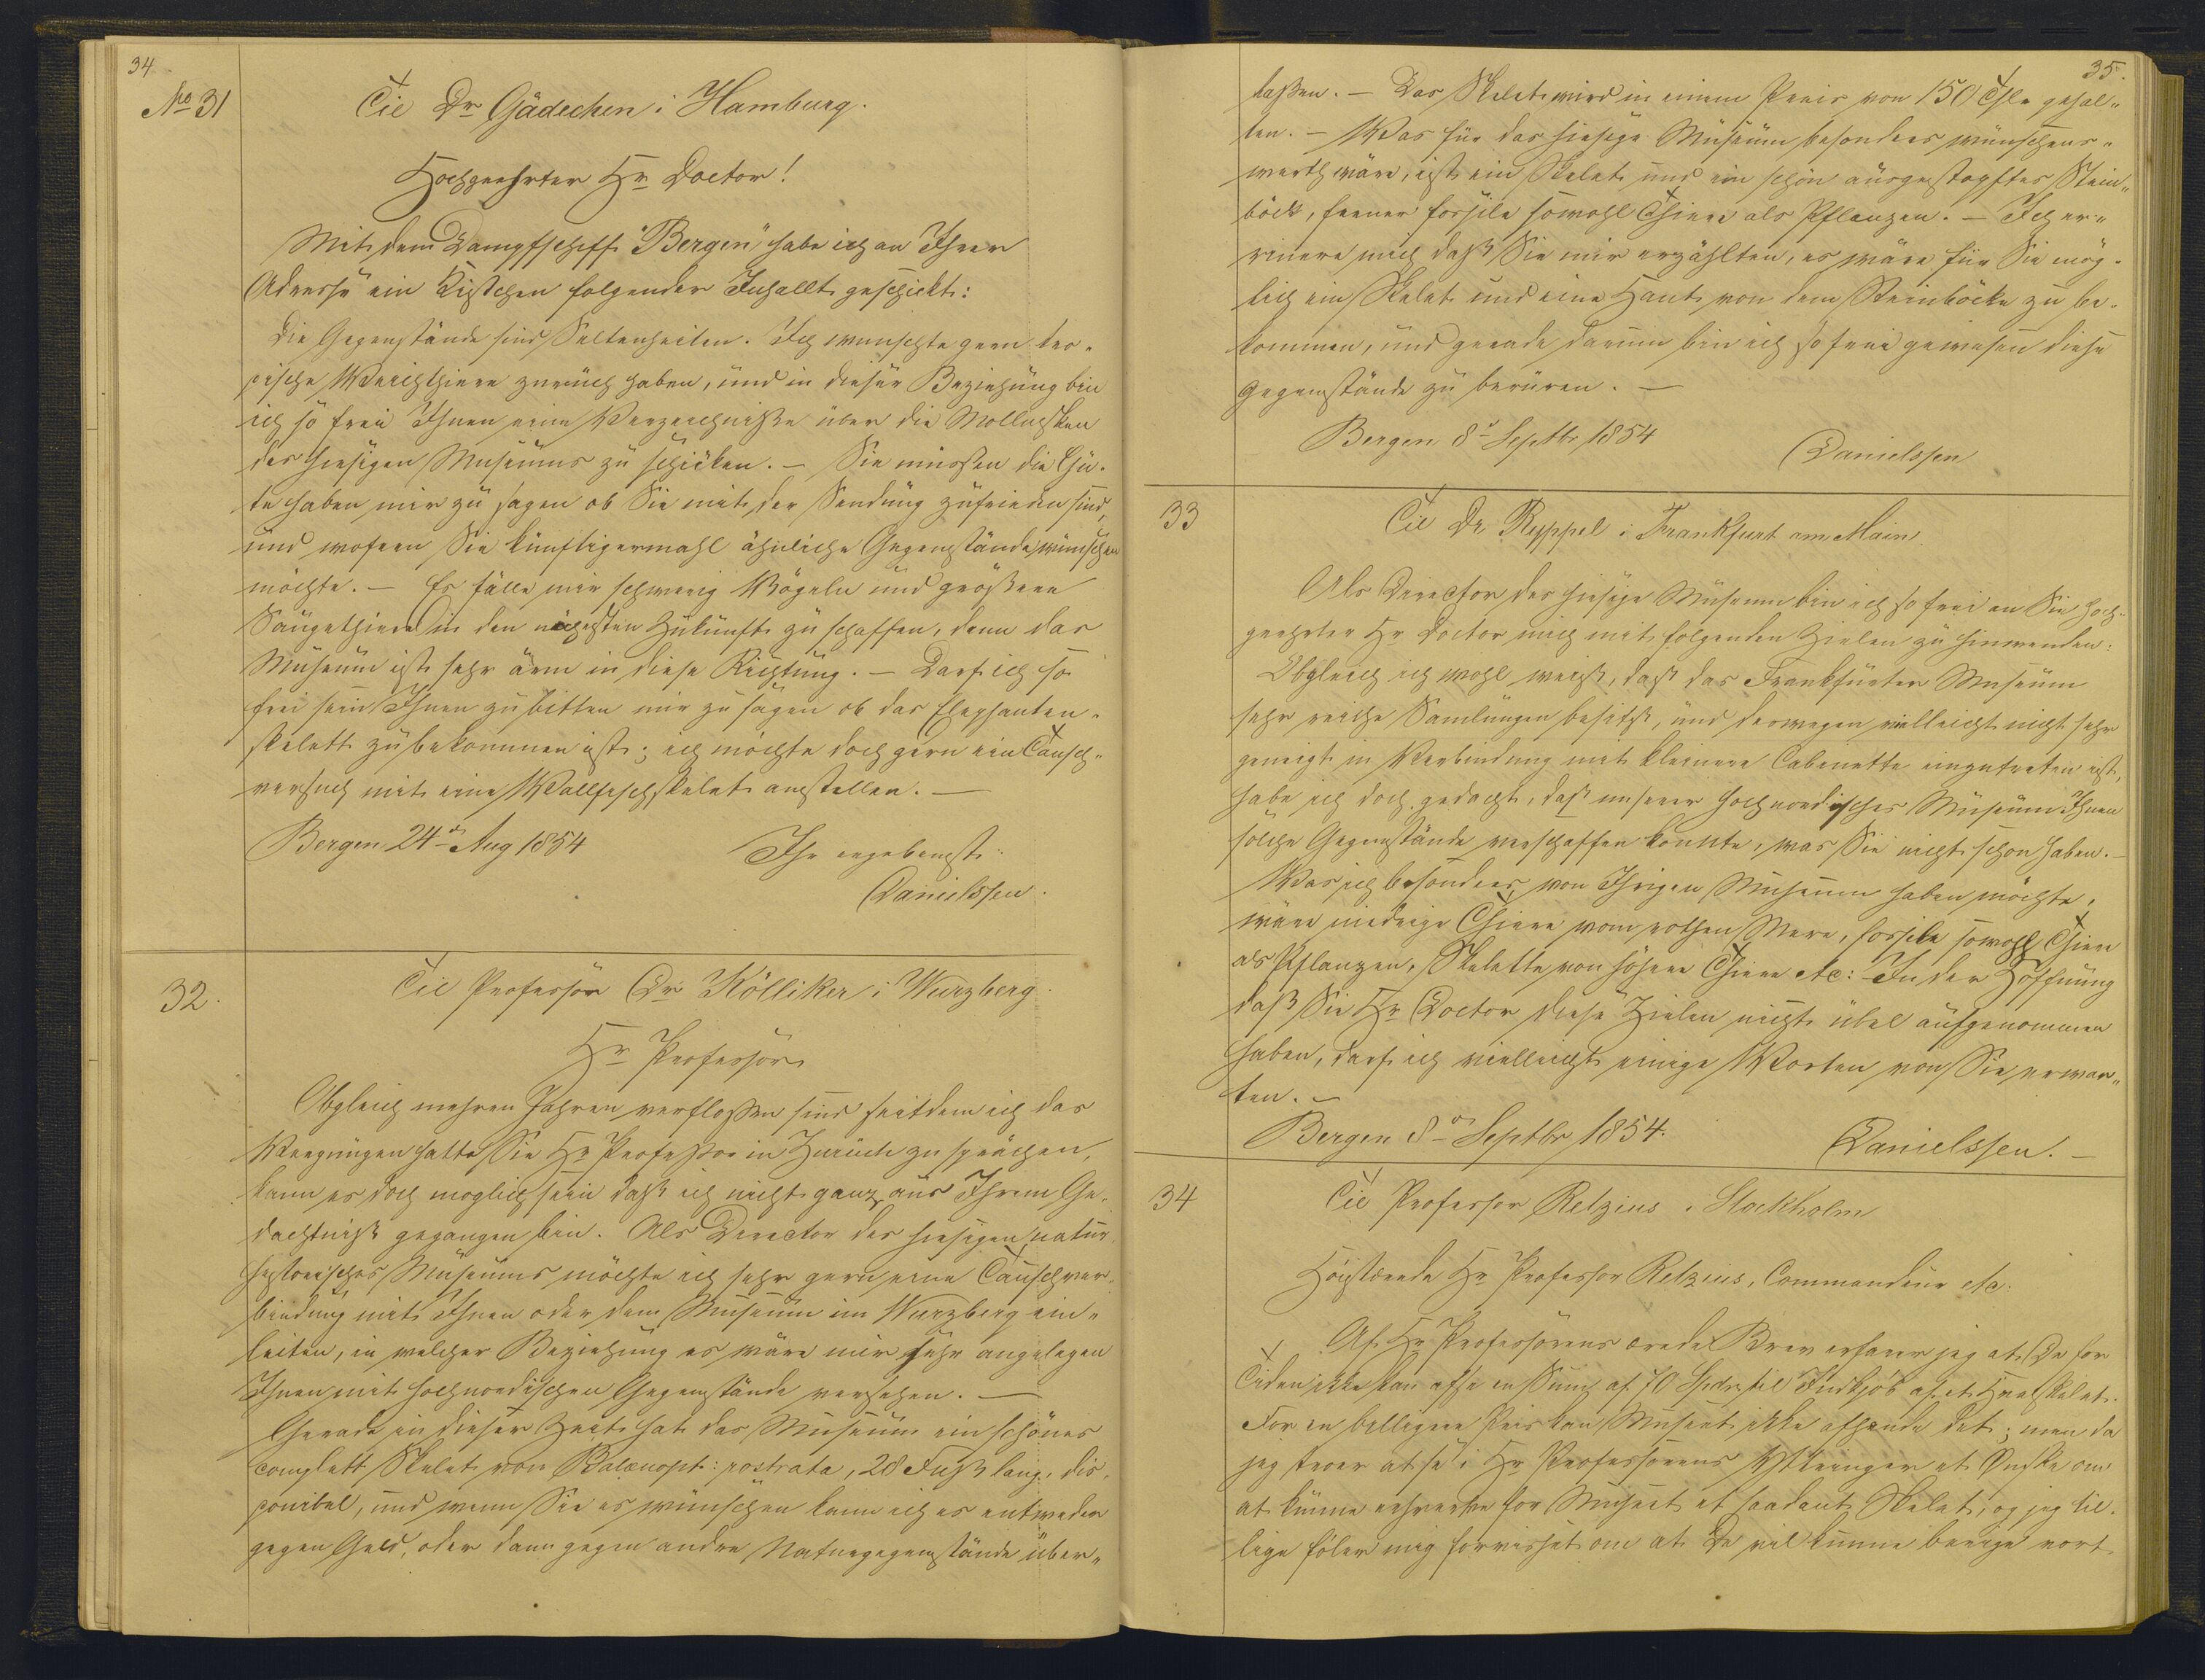 34
No 31
Til Dr Gädechen i Hamburg.
Hochgeehrter Hr Doctor!
Mit dem Dampfschiff "Bergen" habe ich an Ihrer
Adresse ein Kistchen folgender Inhallt geschickt:
Die Gegenstände sind Seltenheiten. Ich wunschte gern tro-
pische Weichthiere zurück haben, und in dieser Beziehung bin
ich so frei Ihnen eine Verzeichnisse über die Mollusken
des hiesigen Museums zu schicken. – Sie müssen die Gü-
te haben mir zu sagen ob Sie mit der Sendung zufrieden sind,
und wofern Sie künftigermahl ähnliche Gegenstände wünschen
möchte. – Es fälle mir schwerig Vögeln und größere
Säugethiere in den nächsten Zukunft zu schaffen, denn das
Museum ist sehr arm in diese Richtung. – Darf ich so
frei sein Ihnen zu bitten mir zu sagen ob das Elephanten-
skelett zu bekommen ist; ich möchte doch gern ein Tausch-
versuch mit eine Wallfischskelet anstellen. –
Bergen 24de Aug 1854
Ihr ergebenst
Danielssen.
32.
Til Professor Dr Kölliker i Wurzberg.
Hr Professor
Obgleich mehren Jahren verfloßen sind seitdem ich das
Vergnügen hatte Sie Hr Professor in Zurück zu sprächen,
kann es doch moglich sein daß ich nicht ganz aus Ihrem Ge-
dachtniß gegangen bin. Als Director des hiesigen natur-
historisches Museums möchte ich sehr gern eine Tauschver-
bindung mit Ihnen oder dem Museum im Wurzberg ein-
leiten, in welcher Beziehung es wäre mir sehr angelegen
Ihnen mit hochnordischen Gegenstände versehen. –
Gerade in dieser Zeit hat das Museum ein schönes
complett Skelet von Balænopt: rostrata, 28 Fuß lang, dis-
ponibel, und wenn Sie es wünschen kann ich es entweder
gegen Geld, oder dann gegen andre Naturgegenstände über-
35.
laßen. – Das Skelet wird in einem Preis von 150 Thlr gehal-
ten. – Was für das hiesige Museum besonders wünschens-
werth wäre, ist ein Skelet und ein schön ausgestopftes Stein-
bock, ferner fossile sowohl Thiere als Pflanzen. – Ich er-
rinere mich daß Sie mir erzählten, es wäre für Sie mög-
lich ein Skelet und eine Haut von dem Steinböcke zu be-
kommen, und gerade darum bin ich so frei gewesen diese
Gegenstände zu berüren. –
Bergen 8de Septbr 1854
Danielssen
33
Til Dr Ryppel i Frankfurt am Main
Als Director des hiesige Museum bin ich so frei an Sie hoch-
geehrter Hr Doctor mich mit folgenden Zielen zu hinwenden:
Obgleich ich wohl weiß, daß das Frankfurter Museum
sehr reiche Samlungen besitzt, und deswegen vielleicht nicht sehr
geneigt in Verbindung mit kleinere Cabinette einzutreten ist,
habe ich doch gedacht, daß unserer hochnordisches Museum Ihnen
solche Gegenstände verschaffen konnte, was Sie nicht schon haben. –
Was ich besonders von Ihrigen Museum haben möchte,
wäre niedrige Thiere vom rothen Mere, fossile sowohl Thiere
als Pflanzen, Skelette von höhere Thiere etc: In der Hoffnung
daß Sie Hr Doctor diese Zielen nicht übel aufgenommen
haben, darf ich vielleicht einige Worten von Sie erwar-
ten. –
Bergen 8de Septbr 1854.
Danielssen. –
34
Til Professor Retzius i Stockholm
Høistærede Hr Professor Retzius, Commandeur etc:
Af Hr Professorens ærede Brev erfarer jeg at De for
Tiden ikke kan afse en Sum af 70 Spdr til Indkjøb af et Hvalskelet.
For en billigere Pris kan Museet ikke afhænde det; men da
jeg troer at se i Hr Professorens Yttringer et Ønske om
at kunne erhverve for Museet et saadant Skelet, og jeg til-
lige föler mig forvisset om at De vil kunne berige vort